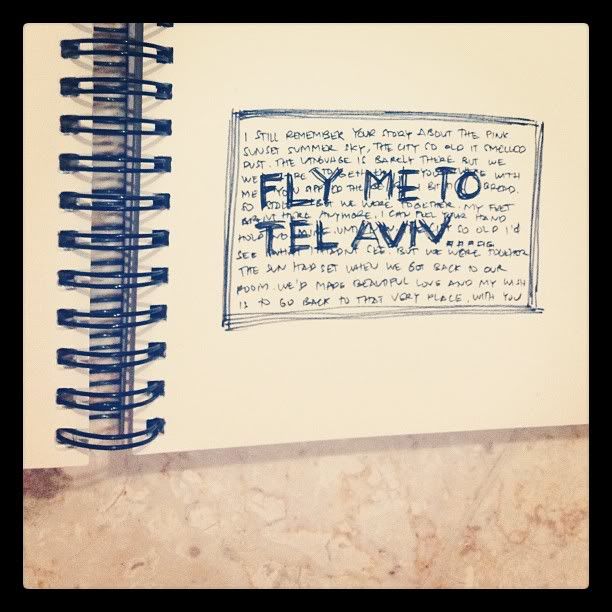 I STILL REMEMBER YOUR STORY ABOUT THE PINK
SUNSET SUMMER SKY, THE CITY SO OLD IT SMELLED
DUST. THE LANGUAGE IS BARELY THERE BUT WE
WE WITH
FLY ME TO
ME BREAD.
BUT WE WERE TOGETHER. MY FEET
HERE ANYMORE. I CAN FEEL YOUR HAND
TEL AVIV.....
SO OLD I'D
SEE BUT WE WERE TOGETHER
THE SUN HAD SET WHEN WE GOT BACK TO OUR
ROOM. WE'D MADE BEAUTIFUL LOVE AND MY WISH
IS TO GO BACK TO THAT VERY PLACE, WITH YOU